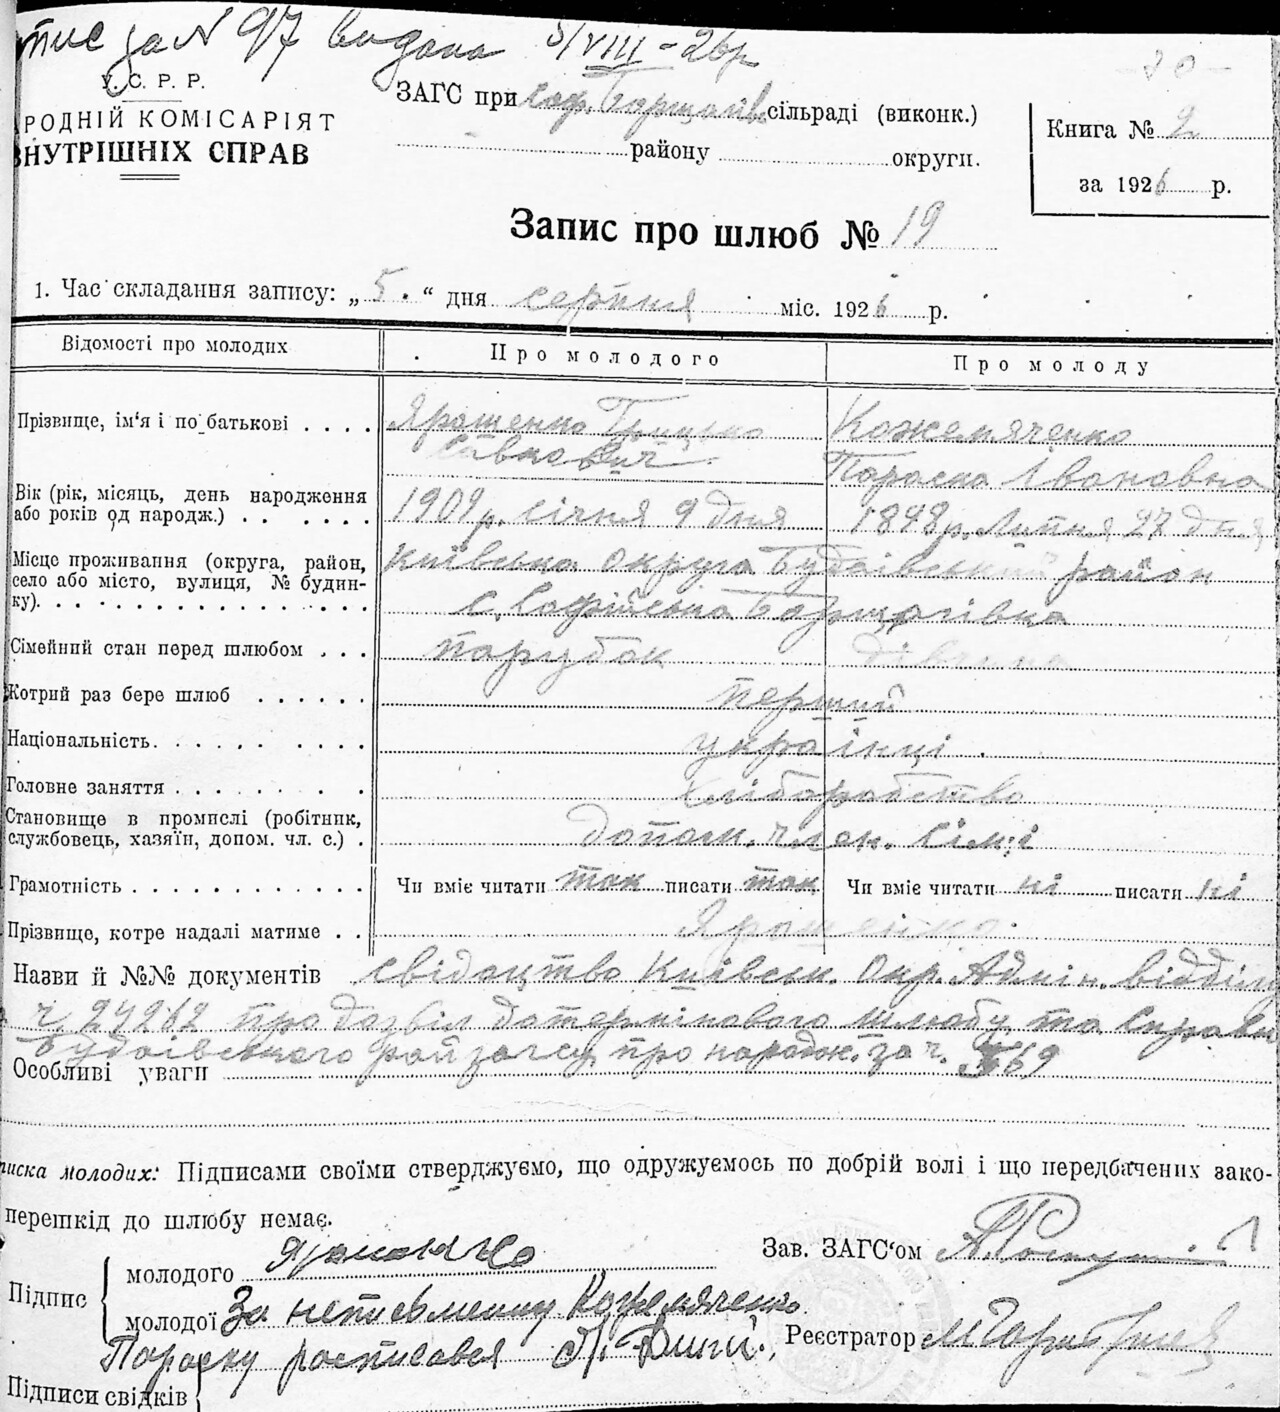 пис за N 97 видана 5/VIII – 26р
У.С.Р.Р.
РОДНІЙ КОМІСАРІЯТ
ВНУТРІШНІХ СПРАВ
ЗАГС при Соф. Борщагів сільраді (виконк.)
району округи.
30
Книга № 2
за 1926 р.
Запис про шлюб № 19
1. Час складання запису: „ 5. “ дня серпня міс. 1926 р.
Відомості про молодих Про молодого Про молоду
Прізвище, ім'я і по батькові Ярошенко Грицько Кожемяченко
Савкович Параска Івановна
Вік (рік, місяць, день народження
або років од народж.) 1909 р. січня 9 дня 1898 р. Липня 27 дня
Місце проживання (округа, район, Київська округа Будаівський район
село або місто, вулиця, № будин-
ку). с. Софійська Борщагівка
Сімейний стан перед шлюбом парубок дівчина
Котрий раз бере шлюб перший
Національність українці
Головне заняття хліборобство
Становище в промислі (робітник,
службовець, хазяїн, допом. чл. с.) допом. член. сімї
Грамотність Чи вміє читати так писати так Чи вміє читати ні писати ні
Прізвище, котре надалі матиме Ярошенко.
Назви й №№ документів свідоцтво Київськ. Окр. Адмін. відділу
ч. 24262 про дозвіл дотермінового шлюбу та Справки
Будаівського райзагсу про народж. за ч. 69
Особливі уваги
писка молодих: Підписами своїми стверджуємо, що одружуємось по добрій волі і що передбачених зако-
перешкід до шлюбу немає.
Зав. ЗАГС'ом
Підпис
молодого Ярошенко
молодої За неписьменну Кожемяченко
Параску росписався
Реєстратор
Підписи свідків